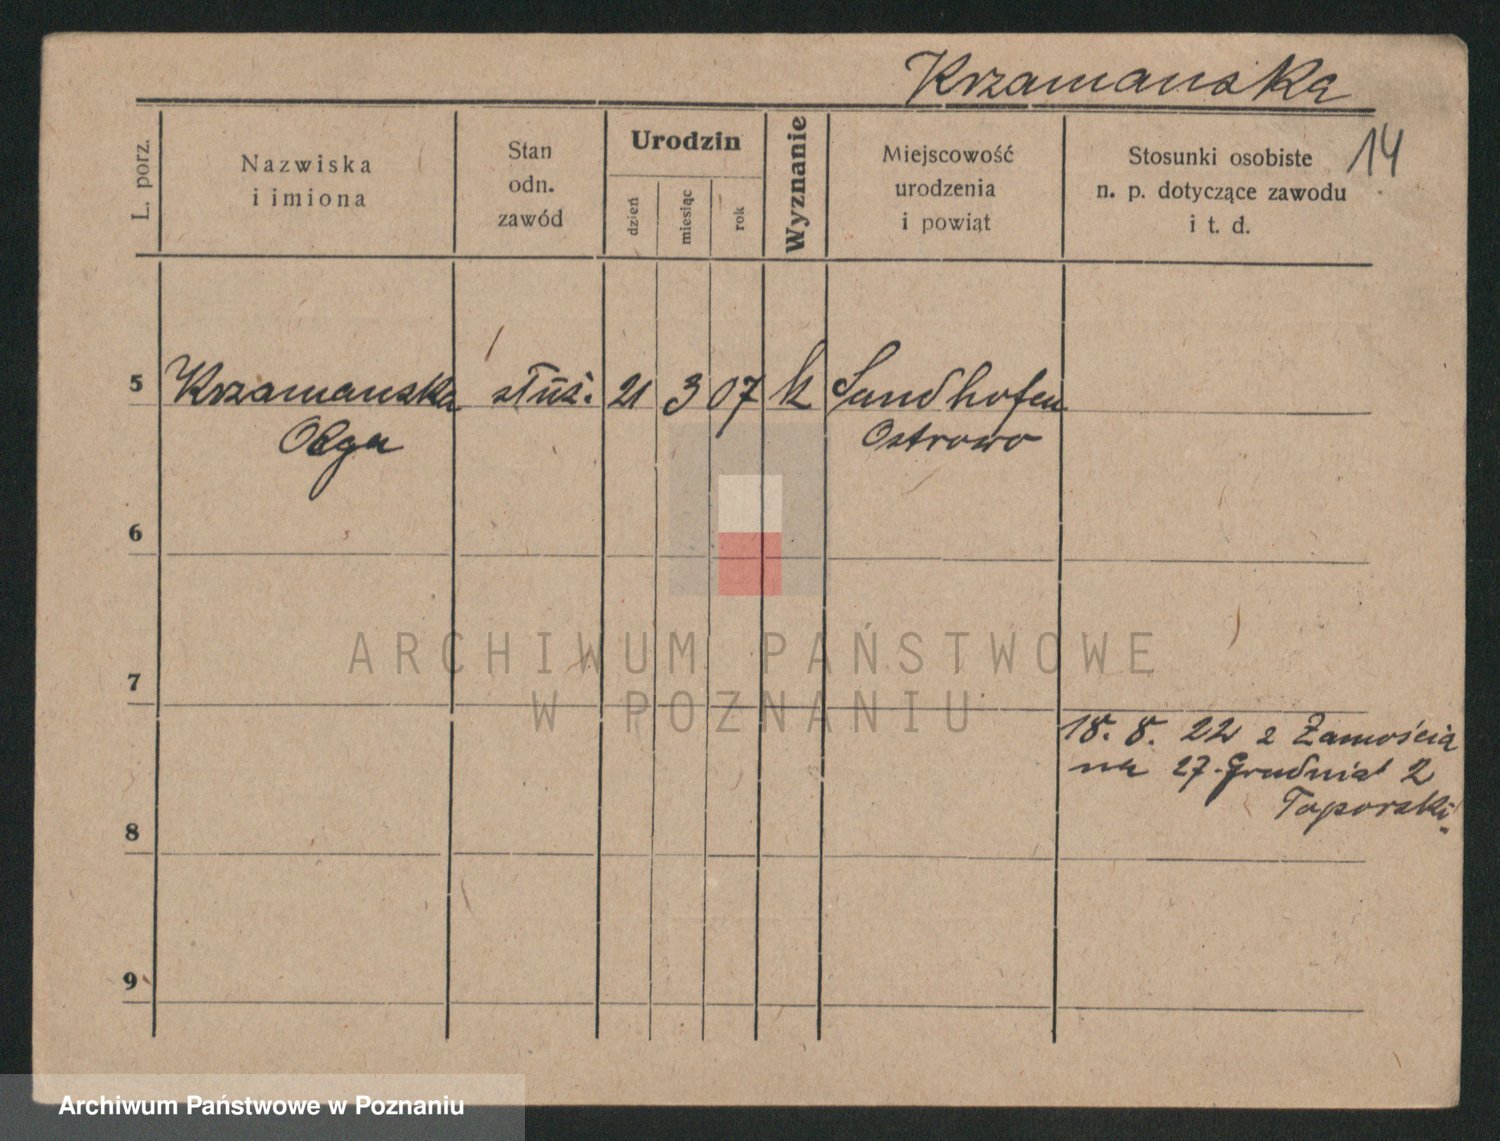 Krzamanska
14
L. porz.
Nazwiska
i imiona
Stan
odn.
zawód
Urodzin
dzień
miesiąc
rok
Wyznanie
Miejscowość
urodzenia
i powiąt
Stosunki osobiste
n. p. dotyczące zawodu
i t. d.
5 Krzamanska służ. 21 3 07 k Sandhofen
Olga Ostrowo
6
7
18. 8. 22 z Zamościa
na 27. Grudnia 2
Toporski
8
9
ARCHIWUM PAŃSTWOWE
W POZNANIU
Archiwum Państwowe w Poznaniu